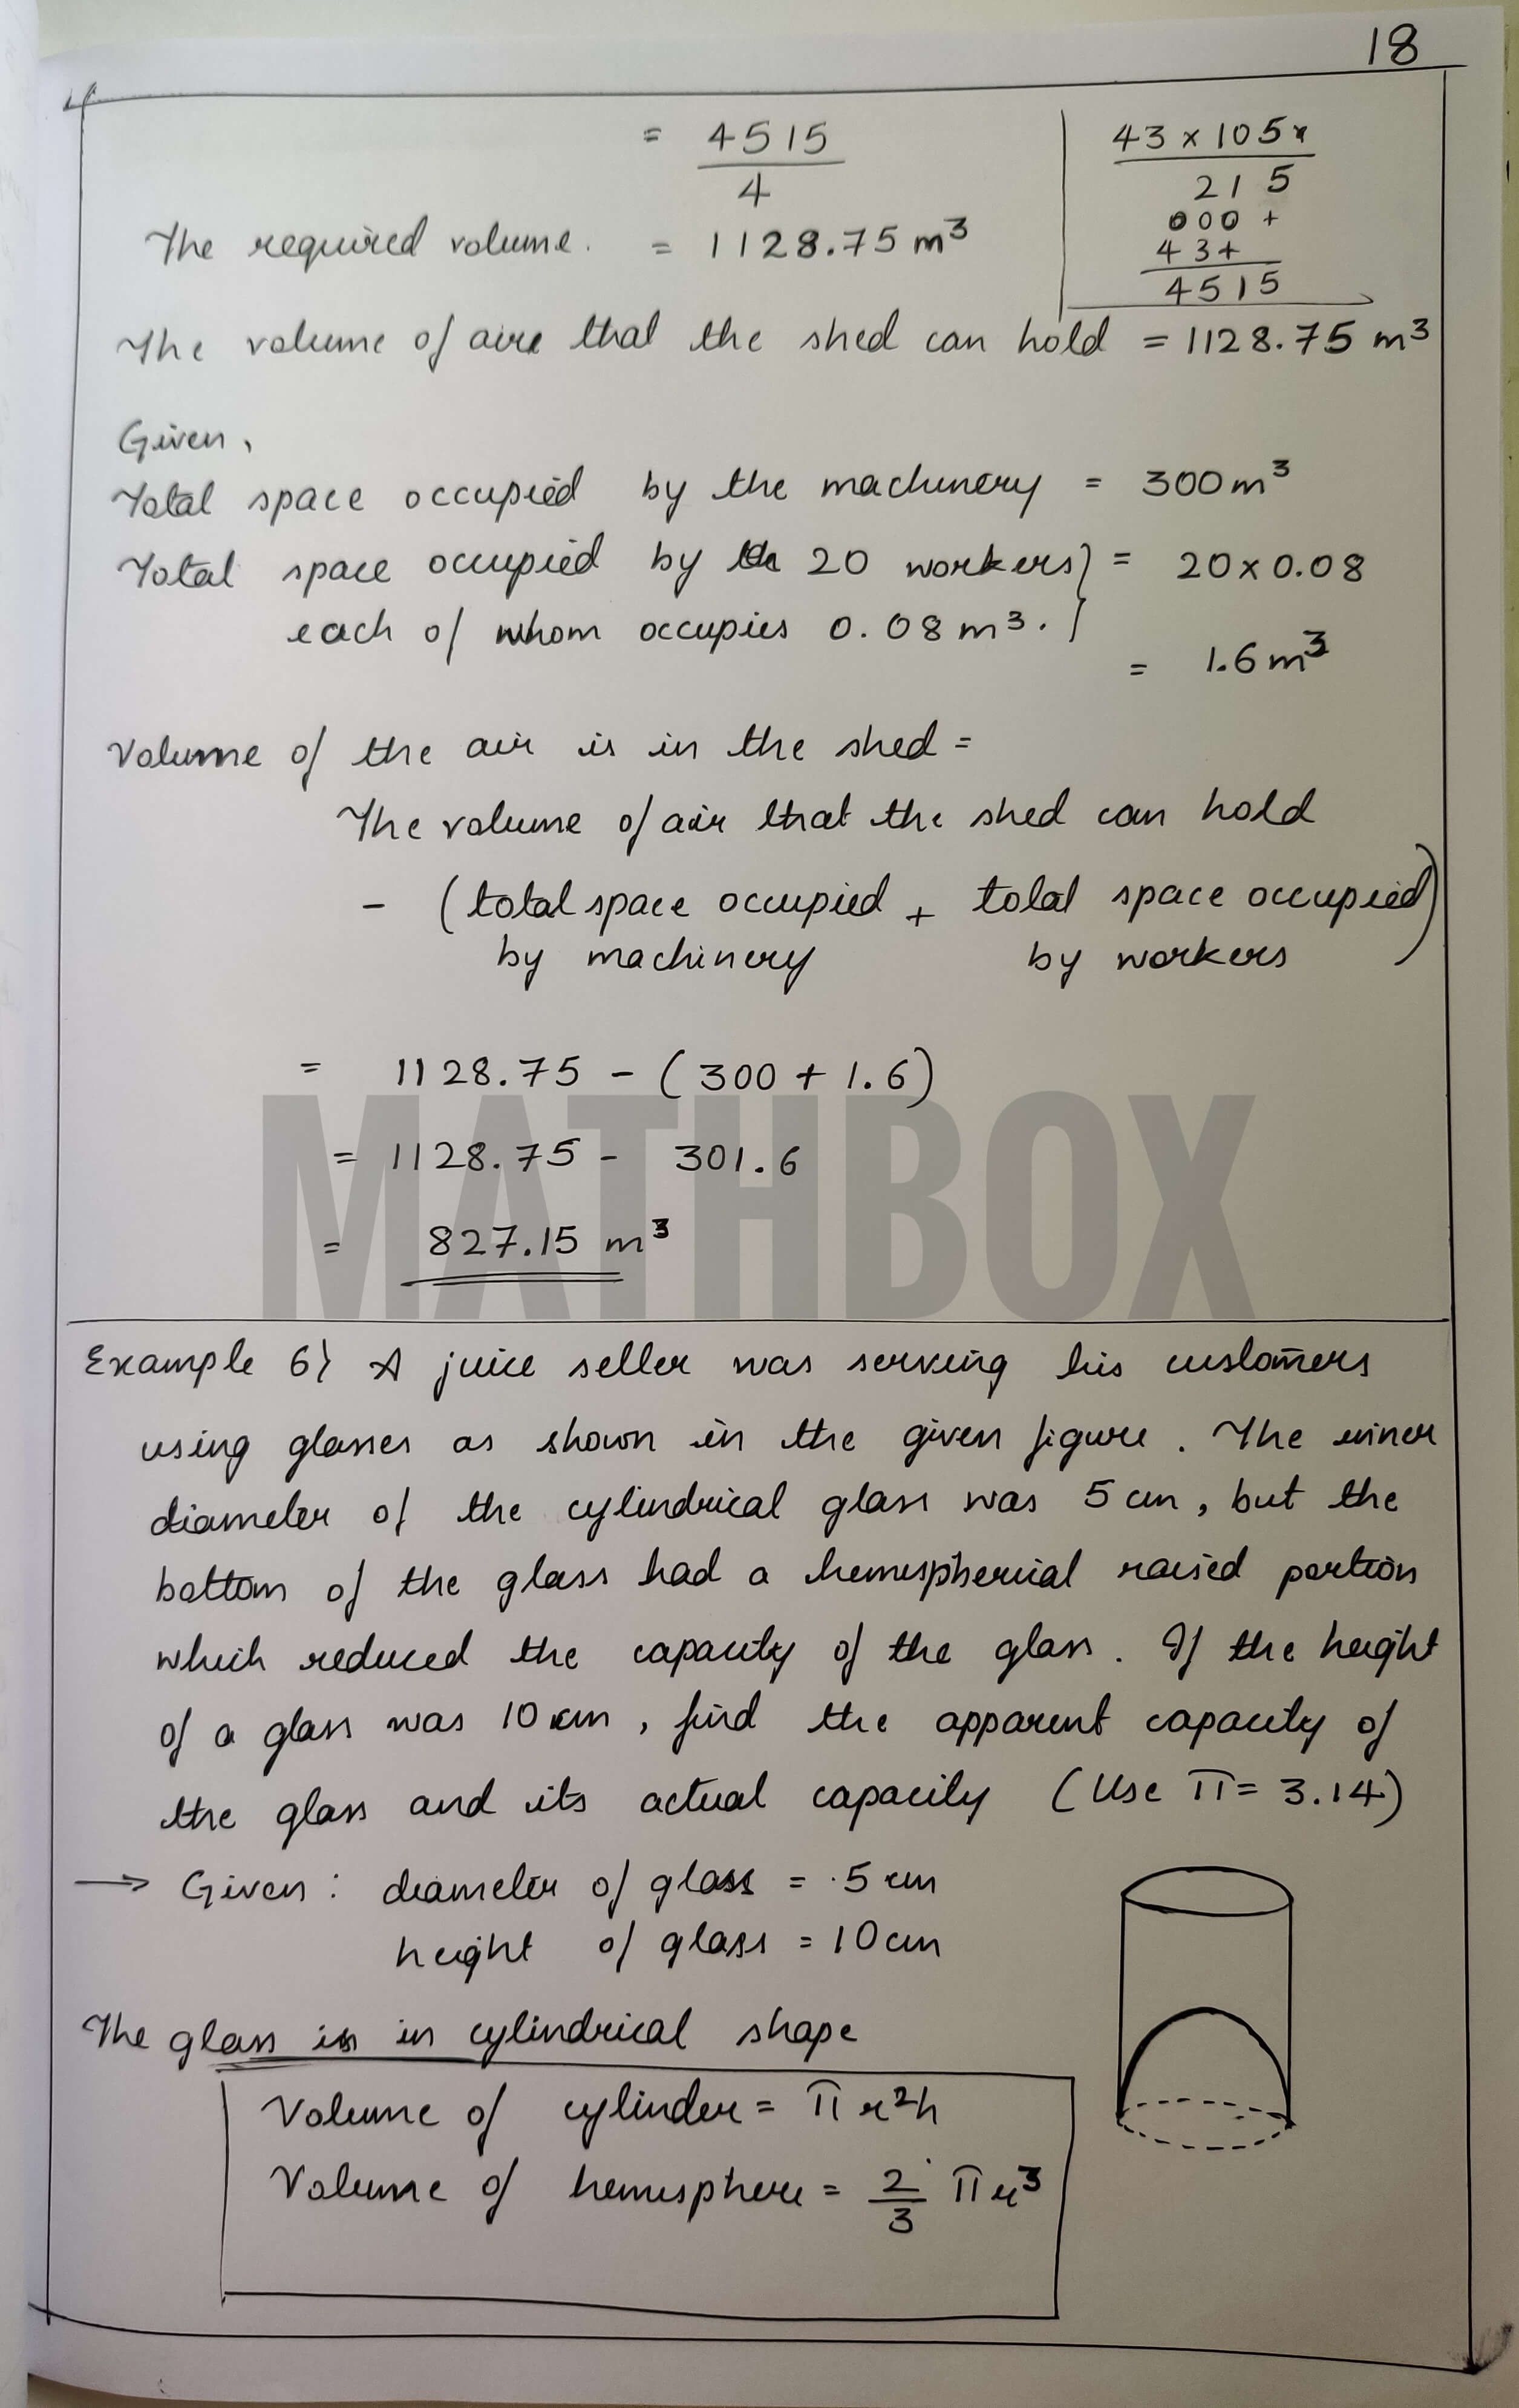 18
= 4515/4
43 x 105x
215
000+
43+
4515
The required volume. = 1128.75 m³
The volume of aire that the shed can hold = 1128.75 m³
Given,
Total space occupied by the machinery = 300 m³
Total space occupied by 20 workers} = 20 x 0.08
each of whom occupies 0.08 m³.}
= 1.6 m³
Volume of the air is in the shed =
The volume of air that the shed can hold
- (total space occupied + total space occupied)
by machinery by workers
= 1128.75 - (300 + 1.6)
= 1128.75 - 301.6
= 827.15 m³
MATHBOX
Example 6} A juice seller was serving his customers
using glasses as shown in the given figure. The inner
diameter of the cylindrical glass was 5 cm, but the
bottom of the glass had a hemispherical raised portion
which reduced the capacity of the glass. If the height
of a glass was 10 cm, find the apparent capacity of
the glass and its actual capacity (Use π = 3.14)
→ Given: diameter of glass = 5 cm
height of glass = 10 cm
The glass is in cylindrical shape
Volume of cylinder = πr²h
Volume of hemisphere = 2/3 πr³